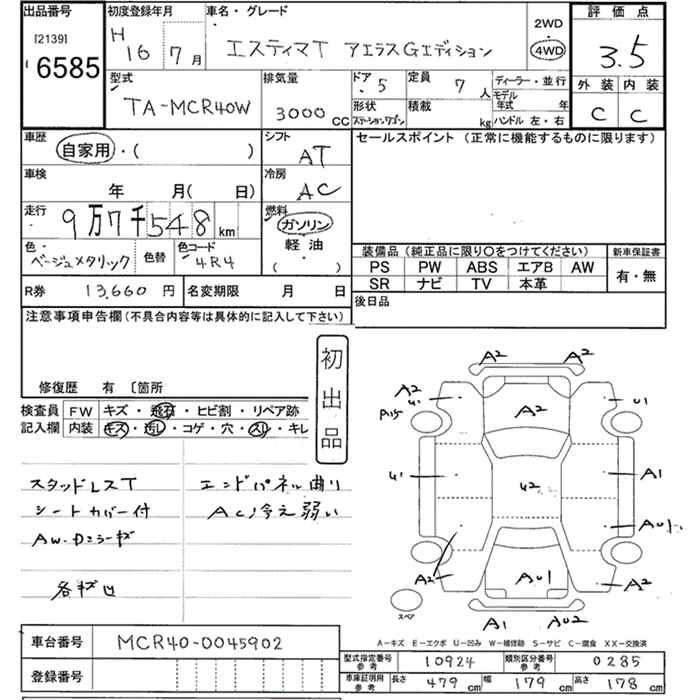 出品番号
[2139]
6585
初度登録年月
H 16 7 月
車名・グレード
エスティマT アエラスGエディション
2WD
4WD
評価点
3.5
外装 内装
C C
型式
TA-MCR40W
排気量
3000 CC
ドア 5
形状
ステーションワゴン
定員 7 人
積載 kg
ディーラー・並行
モデル年式 年
ハンドル 左・右
車歴
自家用・( )
シフト
AT
車検
年 月( 日)
冷房
AC
走行
9万7千548 km
燃料
ガソリン
軽油
( )
色・
ベージュメタリック
色替
色コード
4R4
R券 13,660 円
名変期限 月 日
セールスポイント (正常に機能するものに限ります)
装備品(純正品に限り○をつけてください)
PS PW ABS エアB AW
SR ナビ TV 本革
新車保証書
有・無
後日品
注意事項申告欄(不具合内容等は具体的に記入して下さい)
修復歴 有 〔箇所
初出品
検査員 FW キズ・飛石・ヒビ割・リペア跡
記入欄 内装 キズ・汚レ・コゲ・穴・スレ・キレ
スタッドレスT
シートカバー付
AW・Dミラーキズ
各キズ凹
エンドパネル曲り
AC冷え弱い
A2 A2
A2 A2 U1
U1
U1 U2 A1
A01
A2 A01 A2
スペア
A1 A02
A−キズ E−エクボ U−凹み W−補修跡 S−サビ C−腐食 XX−交換済
車台番号 MCR40-0045902
登録番号
型式指定番号 参考 10924 類別区分番号 参考 0285
車庫証明用 参考 長さ 479 cm 幅 179 cm 高さ 178 cm